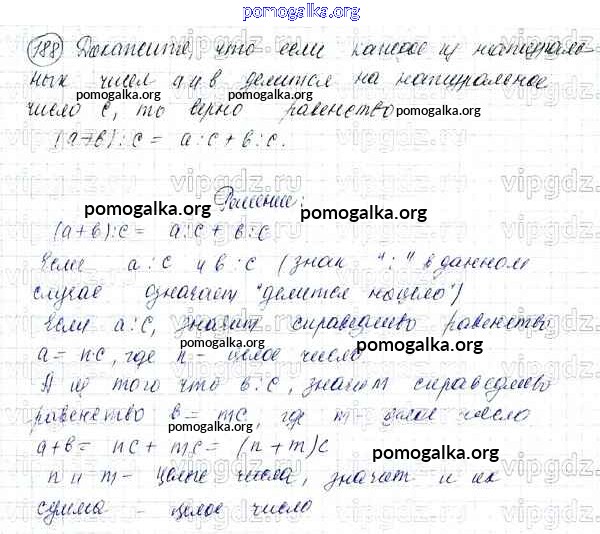 pomogalka.org
188 Докажите, что если каждое из натураль-
ных чисел a и в делится на натуральное
число c, то верно равенство
pomogalka.org
(a+в):c = a:c + в:c.
Решение:
pomogalka.org pomogalka.org
(a+в):c = a:c + в:c
Если a:c и в:c (знак ":" в данном
случае означает "делится нацело")
pomogalka.org
Если a:c, значит справедливо равенство
a = nc, где n - целое число
pomogalka.org
А из того что в:c, значит справедливо
равенство в = mc, где m - целое число
a+в = nc + mc = (n+m)c
pomogalka.org
n и m - целые числа, значит и их
сумма - целое число
pomogalka.org